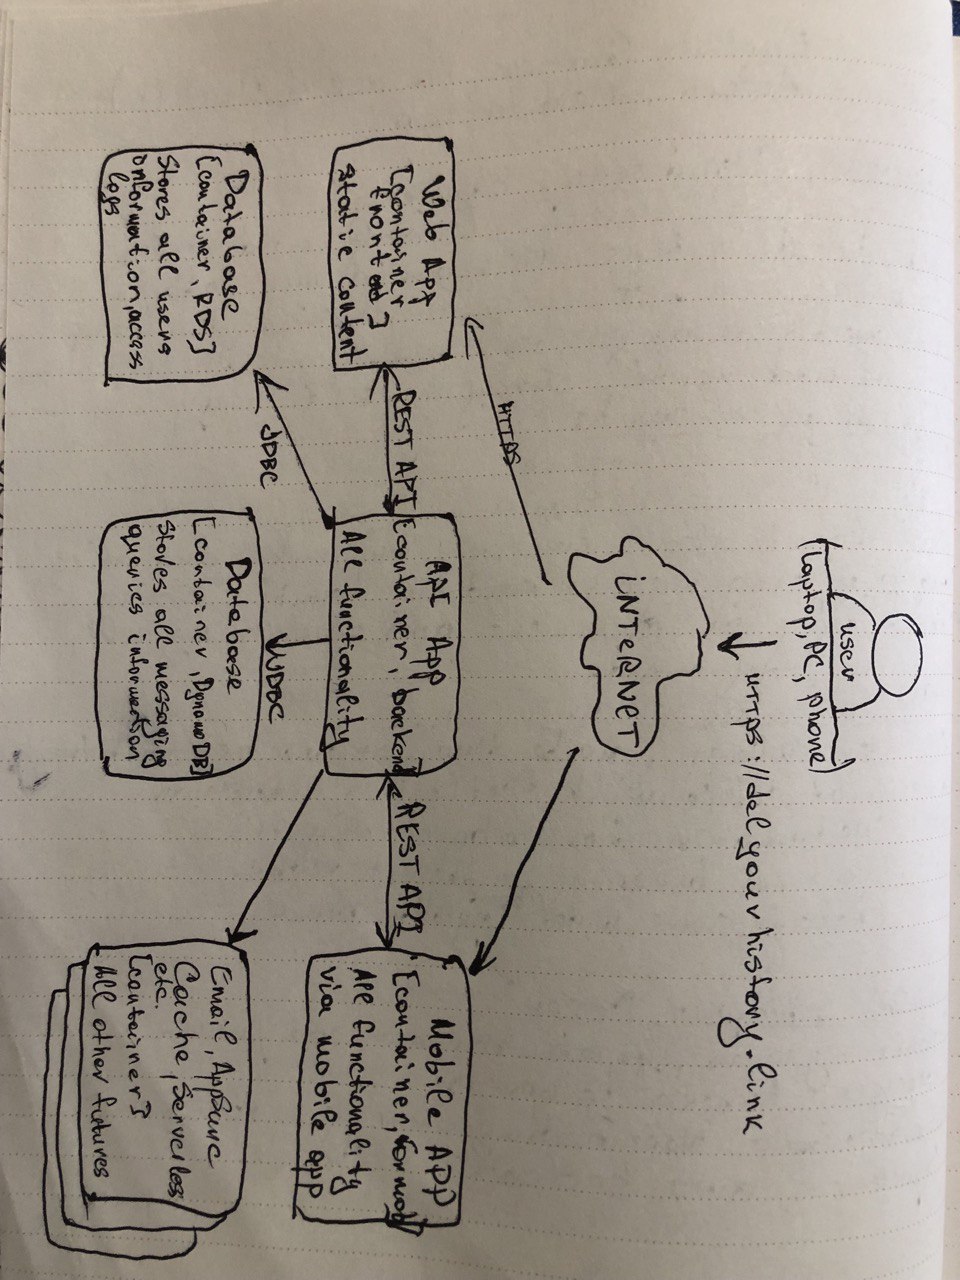 user
(laptop, PC, phone)
HTTPS://delyourhistory.link
iNTeRNeT
HTTPS
Web App
[container
frontend]
static content
REST API
API App
[container, backend]
All functionality
REST API
Mobile APP
[container,
All functionality
via mobile app
JDBC
JDBC
Database
[container, RDS]
Stores all users
information, access
logs
Database
[container, DynamoDB]
Stores all messaging
queries information
Email, AppSunc
Cache, Serverless
etc.
[container]
All other futures